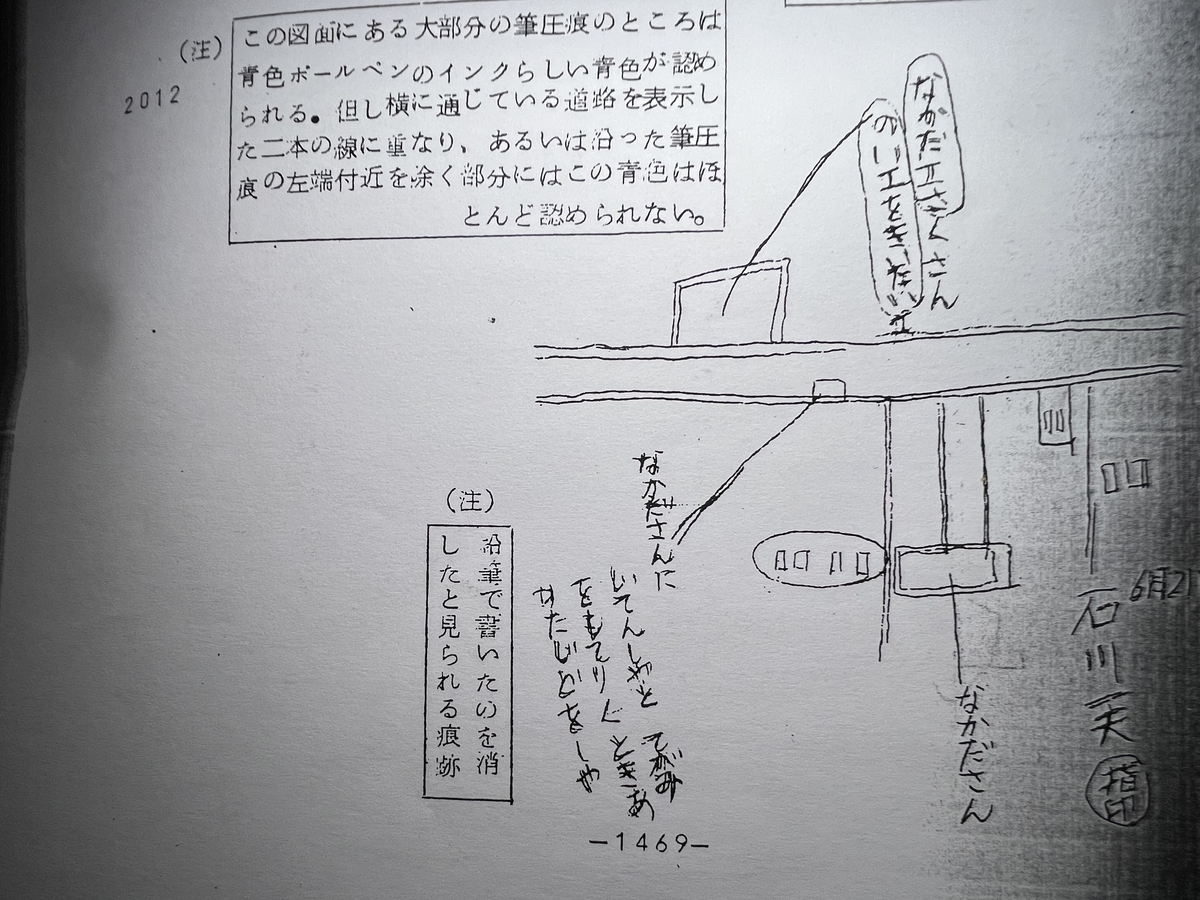 (注)
この図面にある大部分の筆圧痕のところは
青色ボールペンのインクらしい青色が認め
られる。但し横に通じている道路を表示し
た二本の線に重なり、あるいは沿った筆圧
痕の左端付近を除く部分にはこの青色はほ
とんど認められない。
2012
なかだエさくさん
のいエをきいたい
エ
なかださんに
いてんしやと
てがみ
をもてりくときあ
せたじどをしや
(注)
鉛筆で書いたのを消
したと見られる痕跡
なかださん
6月21
石川一夫
指印
-1469-